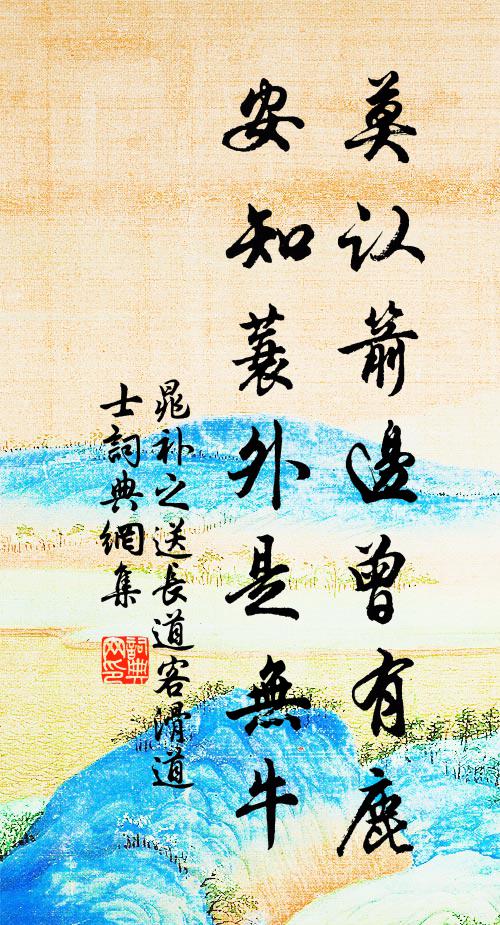 莫认箭邊曾有鹿
安知蓑外是無牛
晁补之送長道客滑道
士詞典網集
詞典
网印